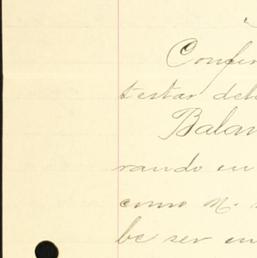 Confir
testar deb
Balan
rando en
como N.
be ser en